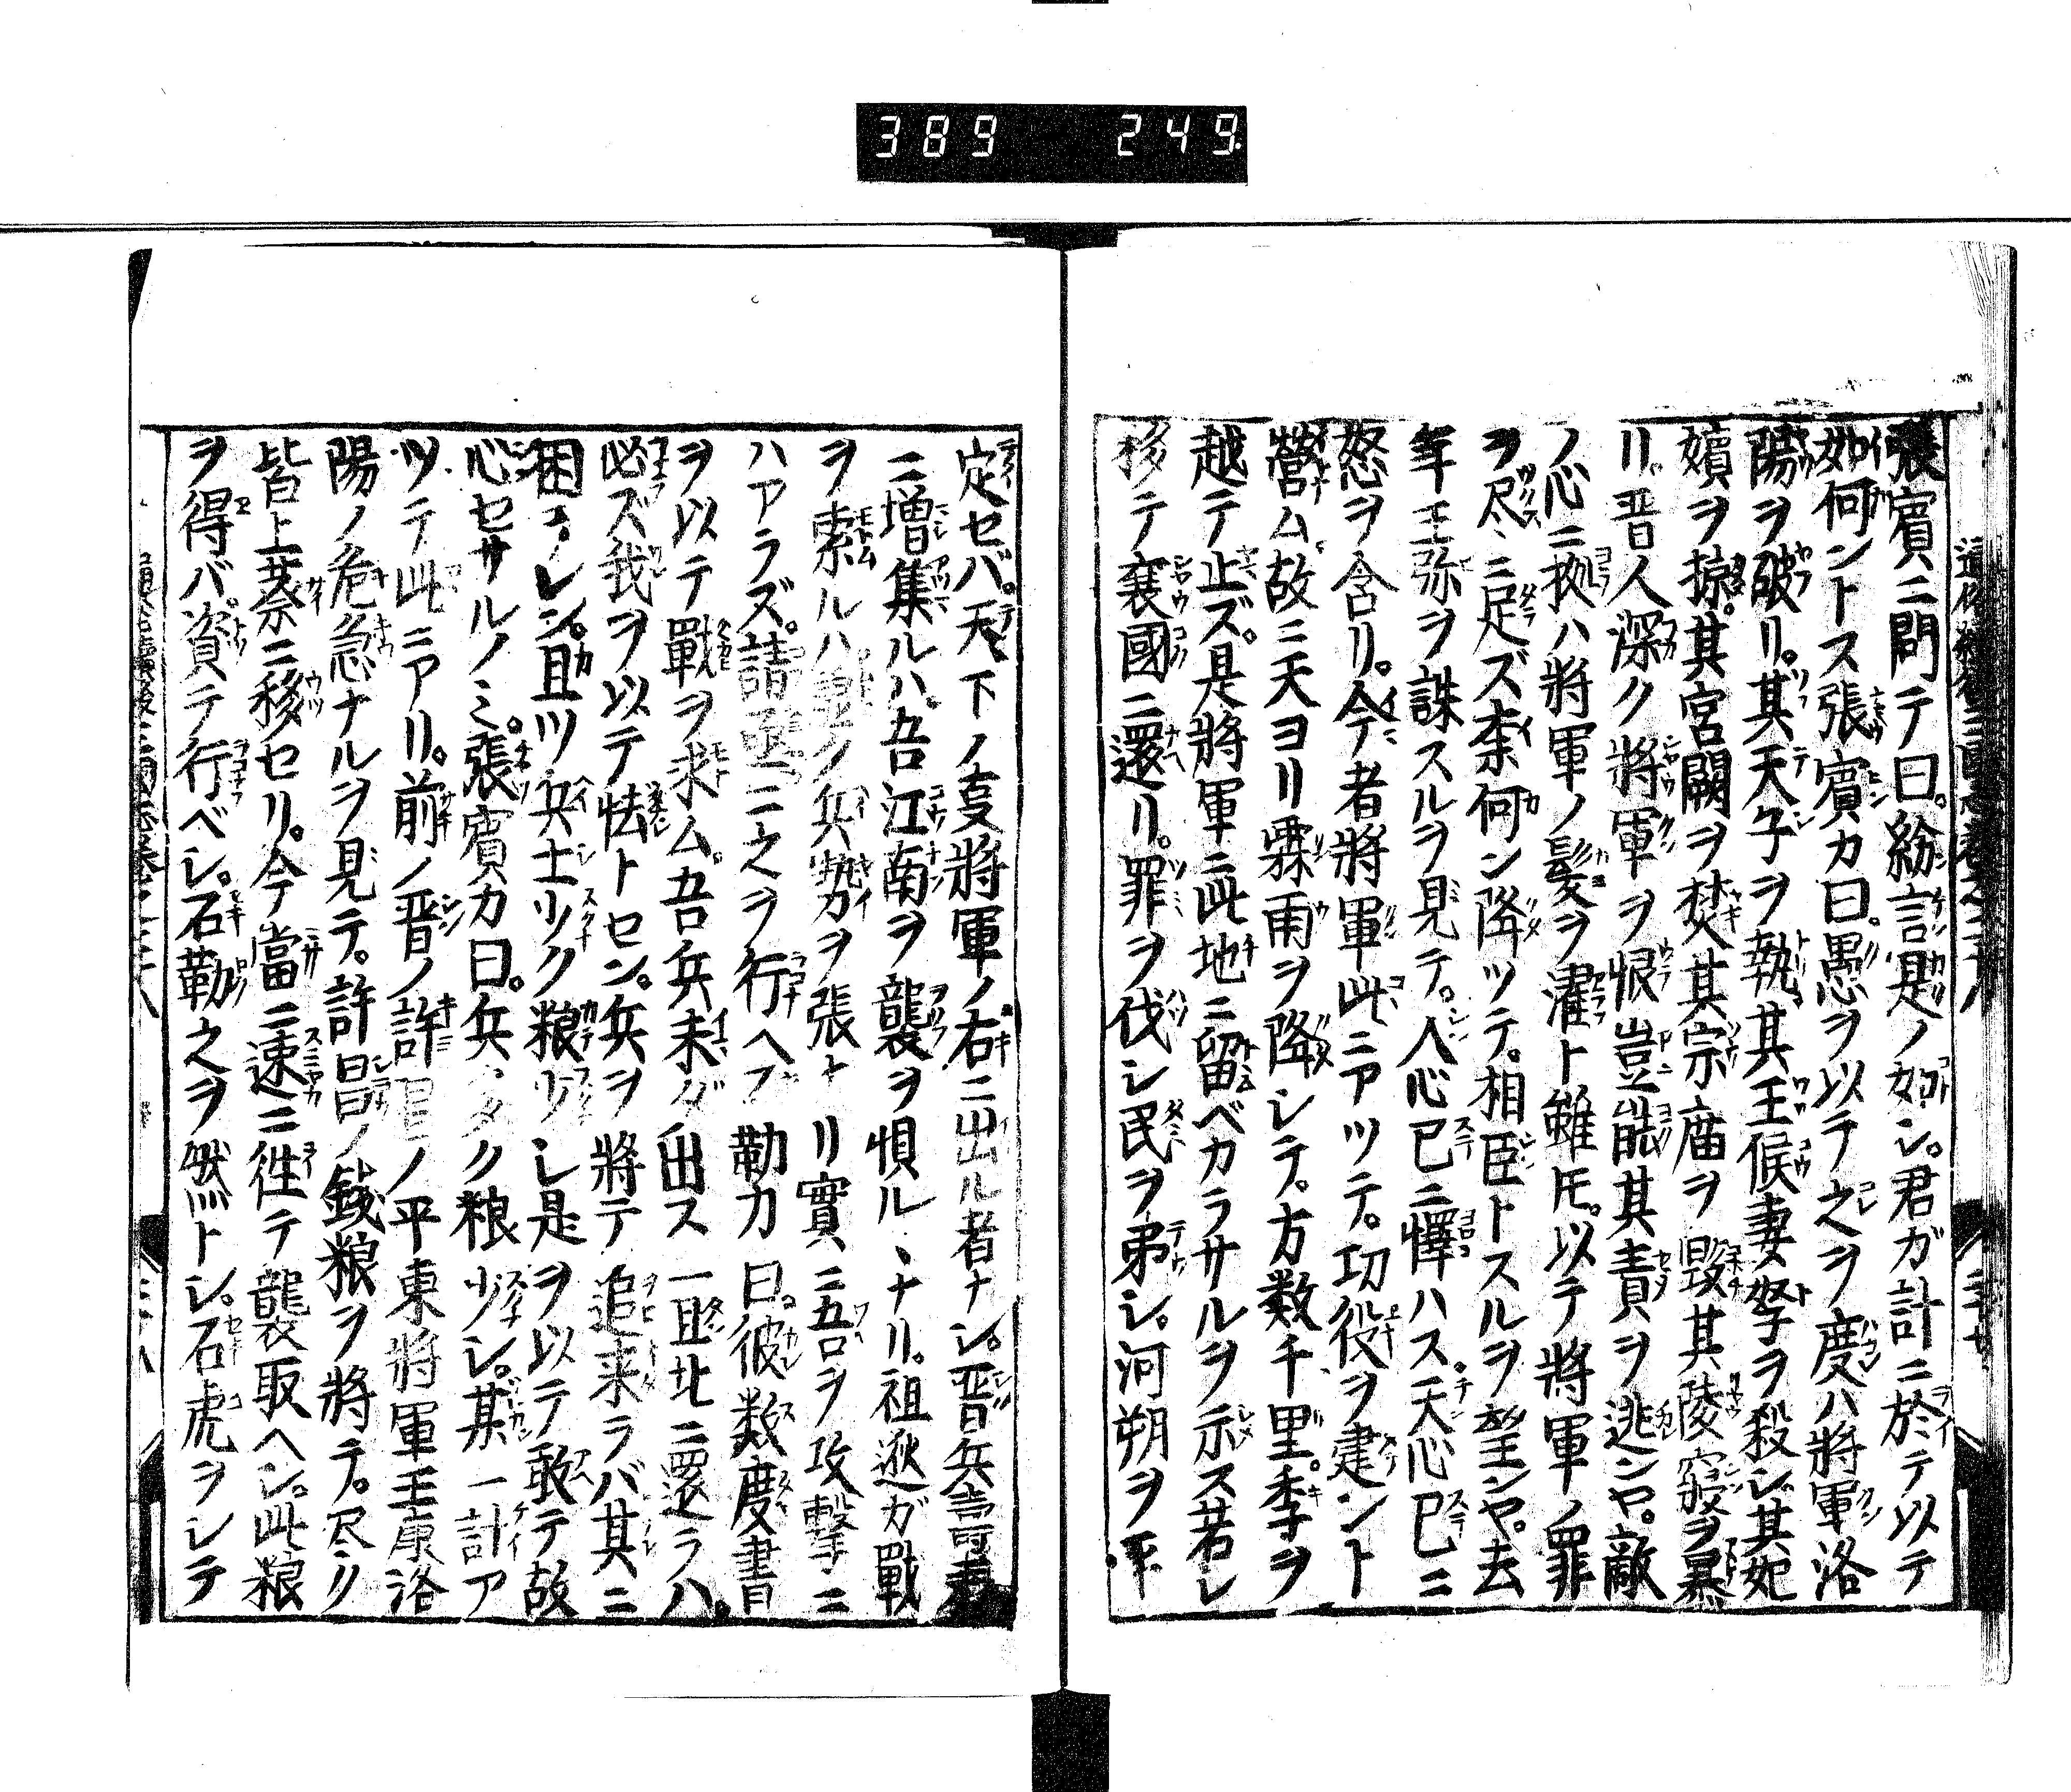 389 249
張賓ニ問テ曰。紛言是ノ如シ。君ガ計ニ於テ以テ
如何ントス張賓カ曰。愚ヲ以テ之ヲ度ハ將軍洛
陽ヲ破リ。其天子ヲ執。其王候妻孥ヲ殺シ。其妃
嬪ヲ掠。其宮闕ヲ焚其宗庿ヲ毀其陵ヲ暴
リ。晋人深ク將軍ヲ恨豈能其責ヲ逃ンヤ。敵
ノ心ニ拠ハ將軍ノ髪ヲ濯ト雖𪜈。以テ將軍ノ罪
ヲ尽ニ足ズ柰何ン降ツテ。相臣トスルヲ望ンヤ。去
年王弥ヲ誅スルヲ見テ。人心已ニ懌ハス。天心已ニ
怒ヲ含リ。今者將軍此ニアツテ。功役ヲ建ント
營ム故ニ天ヨリ霖雨ヲ降シテ。方数千里。季ヲ
越テ止ズ。是將軍ニ此地ニ留ベカラサルヲ示ス若シ
移テ襄國ニ還リ。罪ヲ伐シ民ヲ弔シ。河朔ヲ平
定セバ。天下ノ叓將軍ノ右ニ出ル者ナシ。晋兵壽春
ニ増集ルハ吾江南ヲ襲ヲ惧ルヽナリ。祖逖ガ戰
ヲ索ルハク兵勢ヲ張トリ實ニ吾ヲ攻撃ニ
ハアラズ。請ニ之ヲ行ヘ勒カ曰。彼数度書
ヲ以テ戰ヲ求ム。吾兵未ダ出ス一旦北ニ還ラハ。
必ズ我ヲ以テ怯トセン。兵ヲ將テ追来ラバ其ニ
困マレン。且ツ兵士少ク粮少シ是ヲ以テ敢テ故
心セサルノミ。張賓カ曰。兵タク粮少シ。某一計ア
ツテ此ニアリ。前ノ晋ノ許昌ノ平東將軍王康洛
陽ノ危急ナルヲ見テ。許昌ノ銭粮ヲ將テ。尽リ
皆上蔡ニ移セリ。今當ニ速ニ徃テ襲取ヘシ。此粮
ヲ得バ。資テ行ベシ。石勒之ヲ然トシ。石虎ヲシテ